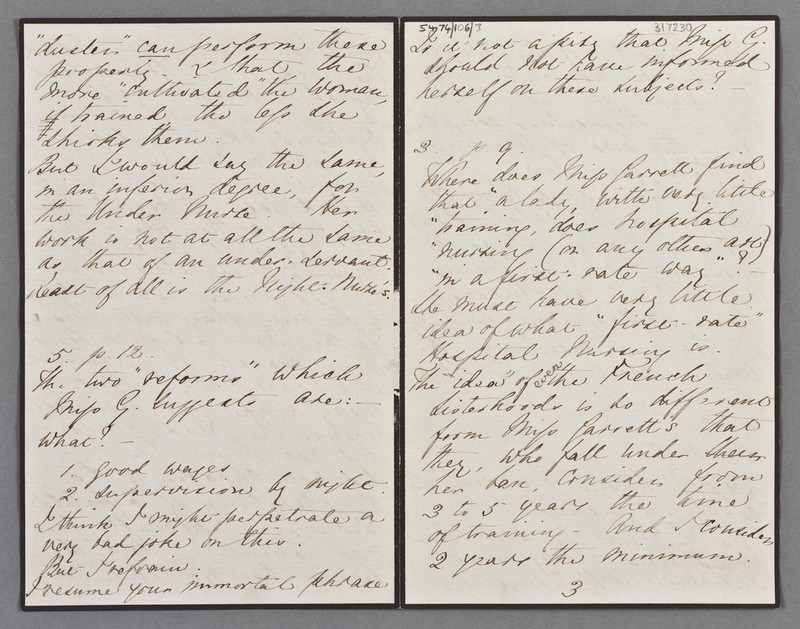 "dusters" can perform these
properly. & that the
more "cultivated" the woman,
if trained, the less she
shirks them.
But I would say the same,
in an inferior degree, for
the Under Nurse. Her
work is not at all the same
as that of an under-servant.
Least of all is the Night: Nurse's.
5. p. 12.
The two "reforms" which
Miss G. suggests are: —
what? —
1. good wages
2. supervision by night.
I think I might perpetrate a
very bad joke on this.
But I refrain.
I resume your immortal phrase
5 74/106/3 317230
Is it not a pity that Miss G.
should not have informed
herself on these subjects? —
3. p. 9.
Where does Miss Garrett find
that "a lady, with very little
"training, does hospital
"nursing (or any other art)
"in a first-rate way"? —
She must have very little
idea of what "first-rate"
Hospital Nursing is.
The "idea" of even the French
Sisterhoods is so different
from Miss Garrett's that
they, who fall under
her ban, consider from
3 to 5 years the time
of training. And I consider
2 years the minimum.
3